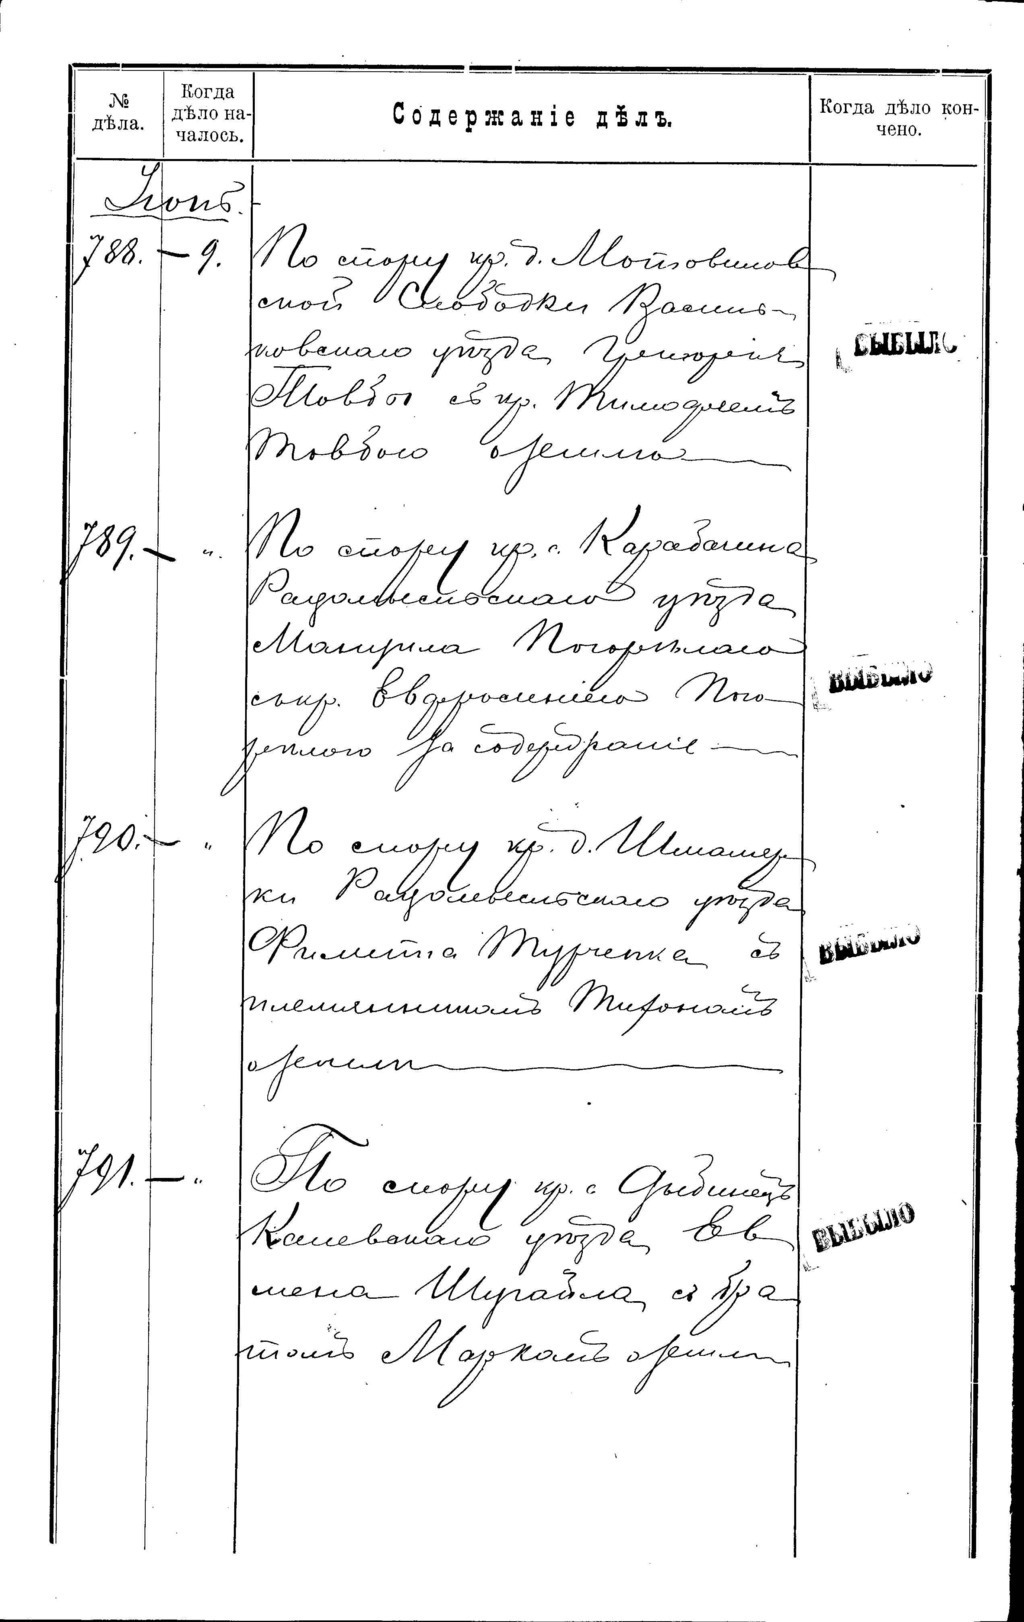 № дѣла.
Когда дѣло началось.
Содержаніе дѣлъ.
Когда дѣло кончено.
788. — 9. По спору кр. д. Мотовилов
ской Слободки Василь-
ковскаго уѣзда Григорія
Товбы съ кр. Тимофеемъ
Товбою о землѣ
ВЫБЫЛО
789. — „ По спору кр. с. Карабачина
Радомысльскаго уѣзда
Погорѣлаго
съ кр. Евфросиніею Пого
рѣлою за содержаніе
ВЫБЫЛО
790. — „ По спору кр. д.
ки Радомысльскаго уѣзда
Филиппа Турченка съ
племянникомъ Тихономъ
о земли
ВЫБЫЛО
791. — „ По спору кр. с Дыбинецъ
Каневскаго уѣзда Ев
мена Шугайла съ бра
томъ Маркомъ о земли
ВЫБЫЛО